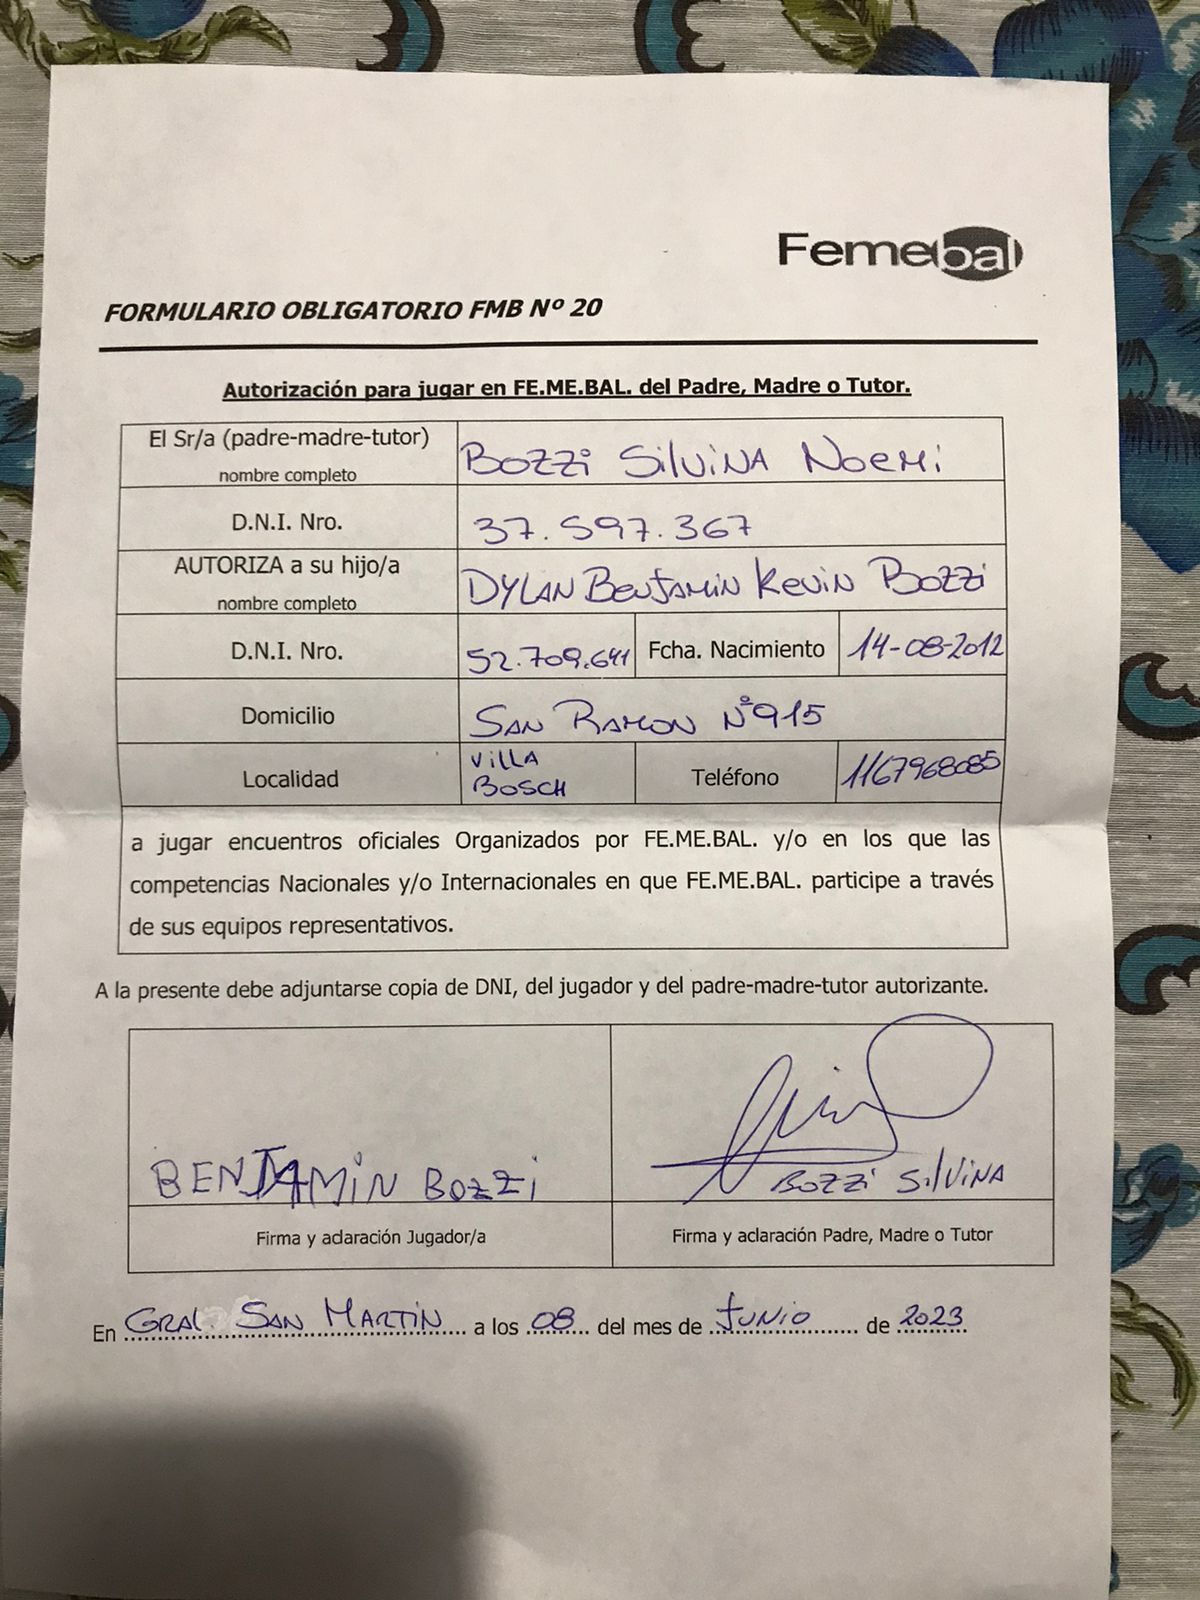 Femebal
FORMULARIO OBLIGATORIO FMB Nº 20
Autorización para jugar en FE.ME.BAL. del Padre, Madre o Tutor.
El Sr/a (padre-madre-tutor)
nombre completo
BOZZi SilviNA NOEMi
D.N.I. Nro.
37.597.367
AUTORIZA a su hijo/a
nombre completo
DYLAN BENJAMiN KEViN BOZZi
D.N.I. Nro.
52.709.641
Fcha. Nacimiento
14-08-2012
Domicilio
SAN RAMON Nº915
Localidad
ViLLA
BOSCH
Teléfono
1167968085
a jugar encuentros oficiales Organizados por FE.ME.BAL. y/o en los que las
competencias Nacionales y/o Internacionales en que FE.ME.BAL. participe a través
de sus equipos representativos.
A la presente debe adjuntarse copia de DNI, del jugador y del padre-madre-tutor autorizante.
BENJAMiN BOZZi
BOZZi SilViNA
Firma y aclaración Jugador/a
Firma y aclaración Padre, Madre o Tutor
En GRAL. SAN MARTiN a los 08 del mes de JUNiO de 2023